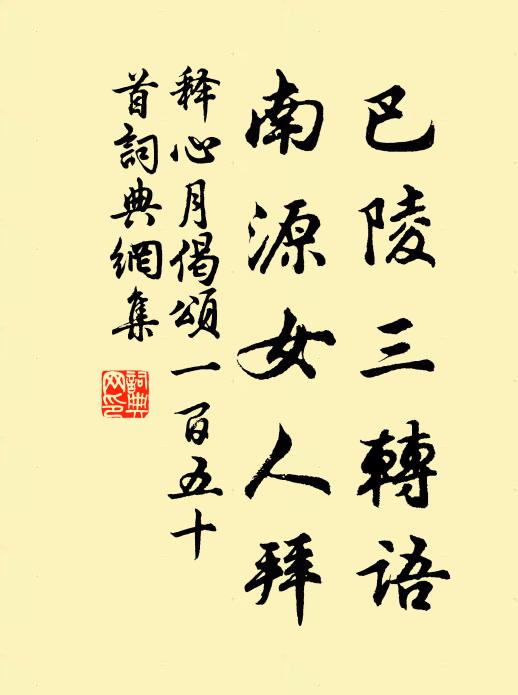 巴陵三轉語
南源女人拜
释心月偈頌一百五十
首詞典網集
詞典網印